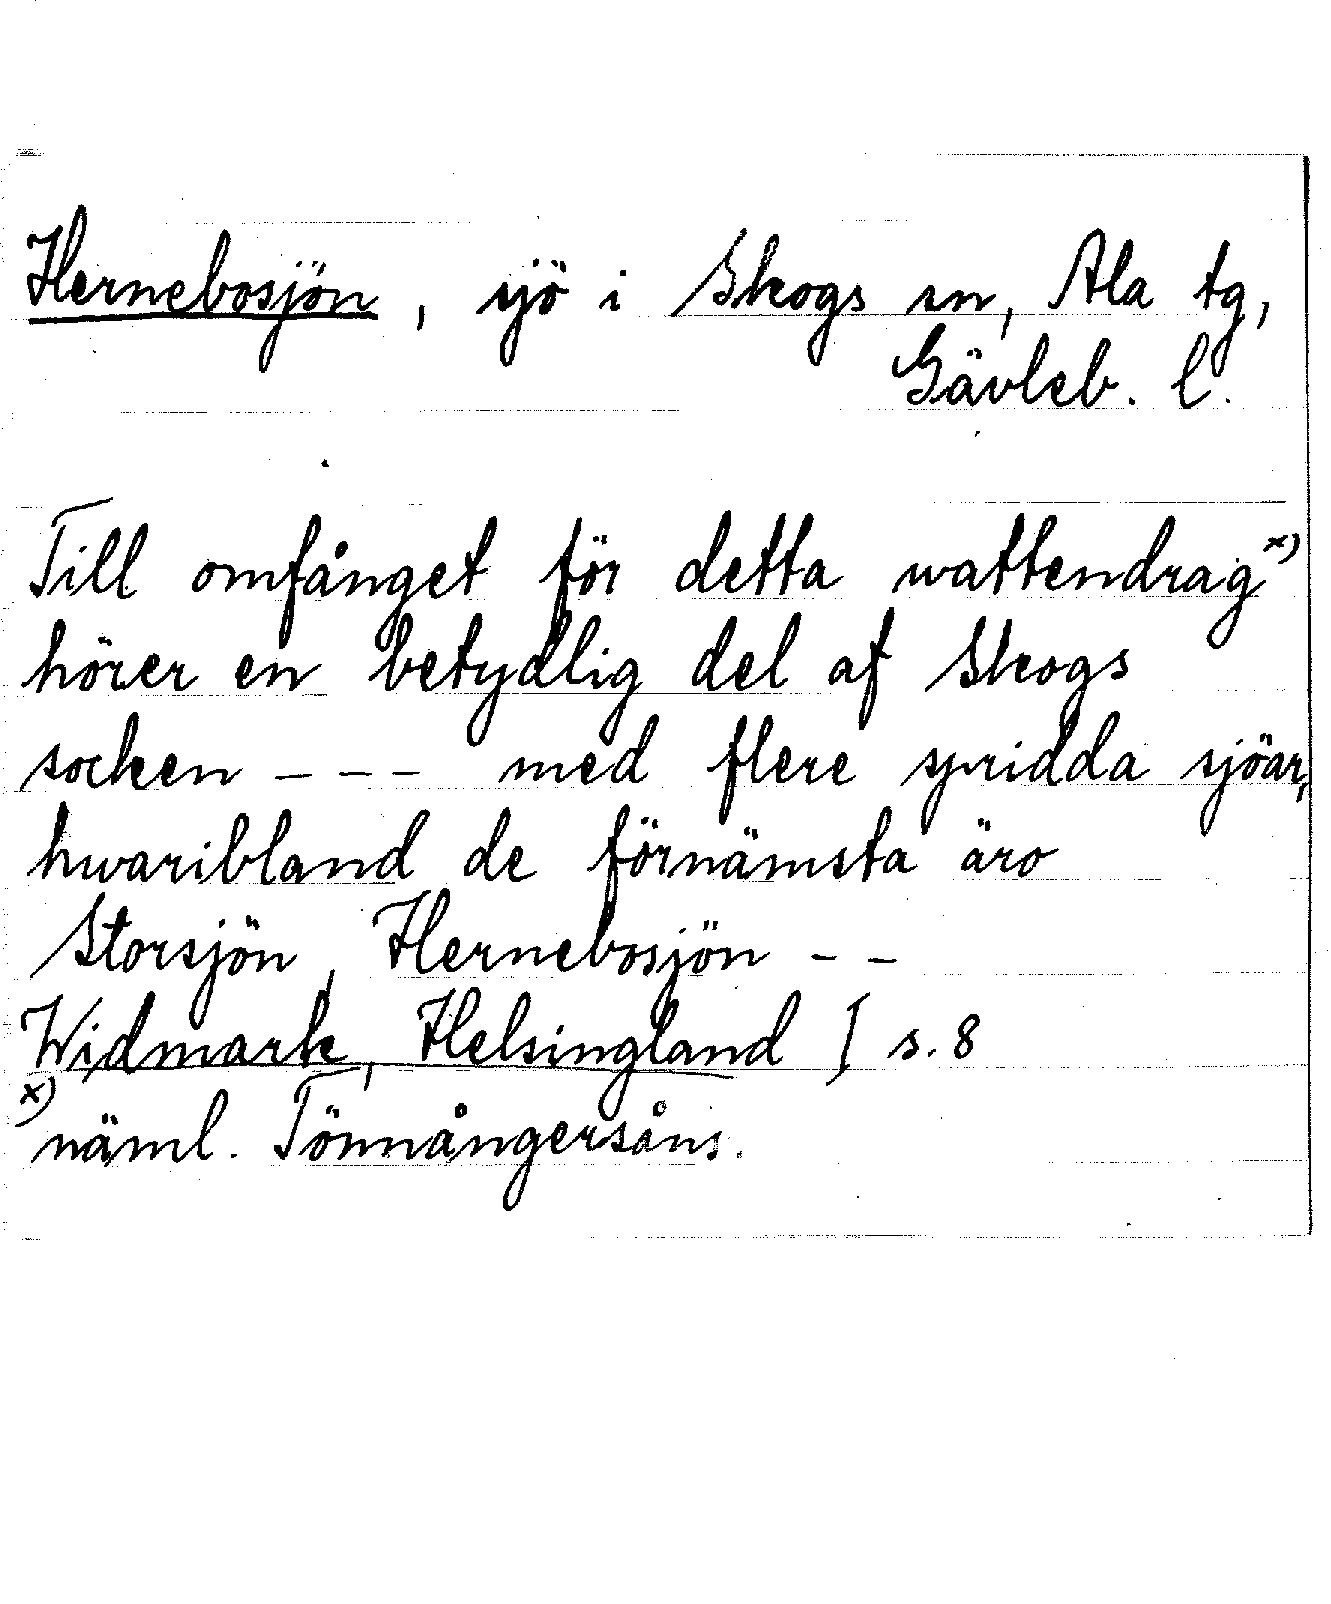 Hernebosjön, sjö i Skogs sn, Ala tg,
Gävleb. l.
Till omfånget för detta wattendrag x)
hörer en betydlig del af Skogs
socken - - - med flere spridda sjöar,
hwaribland de förnämsta äro
Storsjön, Hernebosjön - -
Widmark, Helsingland I s. 8
x) näml. Tönnångersåns.